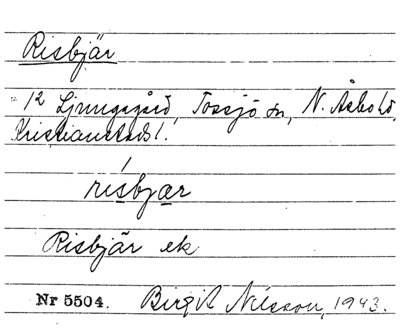 Risbjär
12 Ljungagård, Tossjö sn, N. Åsbo hd,
Kristianstads l.
risbjar
Risbjär ek
Nr 5504. Birgit Nilsson, 1943.